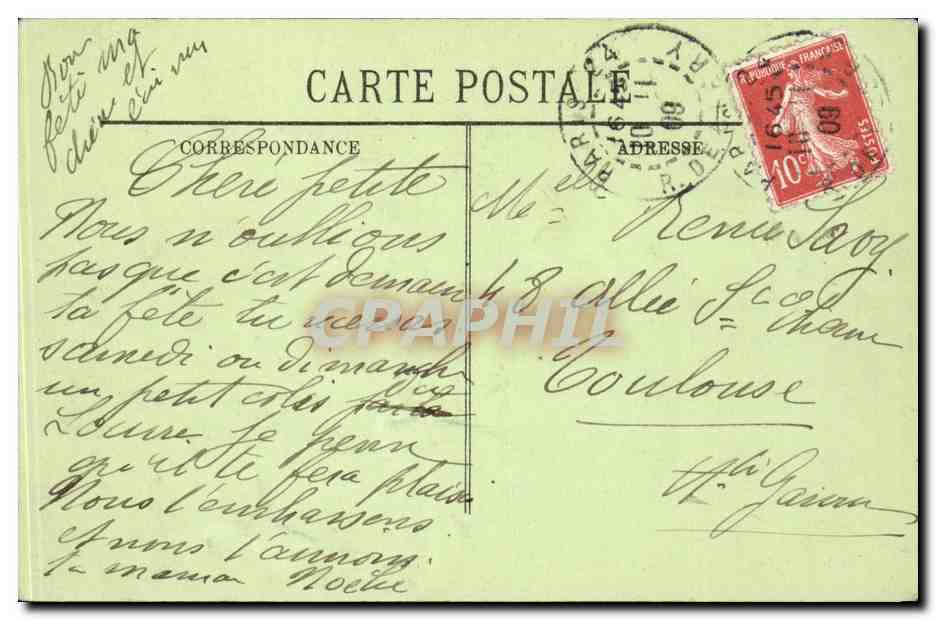 Bonne
fête ma
chérie et
CARTE POSTALE
CORRESPONDANCE
ADRESSE
Chère petite
Nous n'oublions
pas que c'est demain
ta fête tu
samedi ou dimanche
un petit colis
Louvre je pense
qu'il te fera plaisir
Nous t'embrassons
et nous t'aimons
ta maman
Melle Renée Savy
48 allée St
Toulouse
Hte Garonne
PARIS 24
16 45
10 11
09
R. DE
REPUBLIQUE FRANÇAISE
10c
POSTES
PARIS
16 45
10 11
09
CPAPHIL